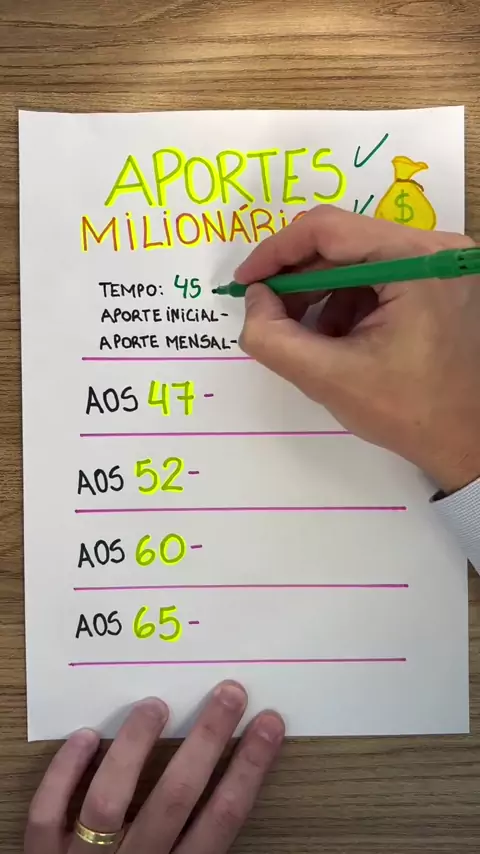 APORTES
MILIONÁRI
$
TEMPO: 45
APORTE INICIAL-
APORTE MENSAL-
AOS 47-
AOS 52-
AOS 60-
AOS 65-